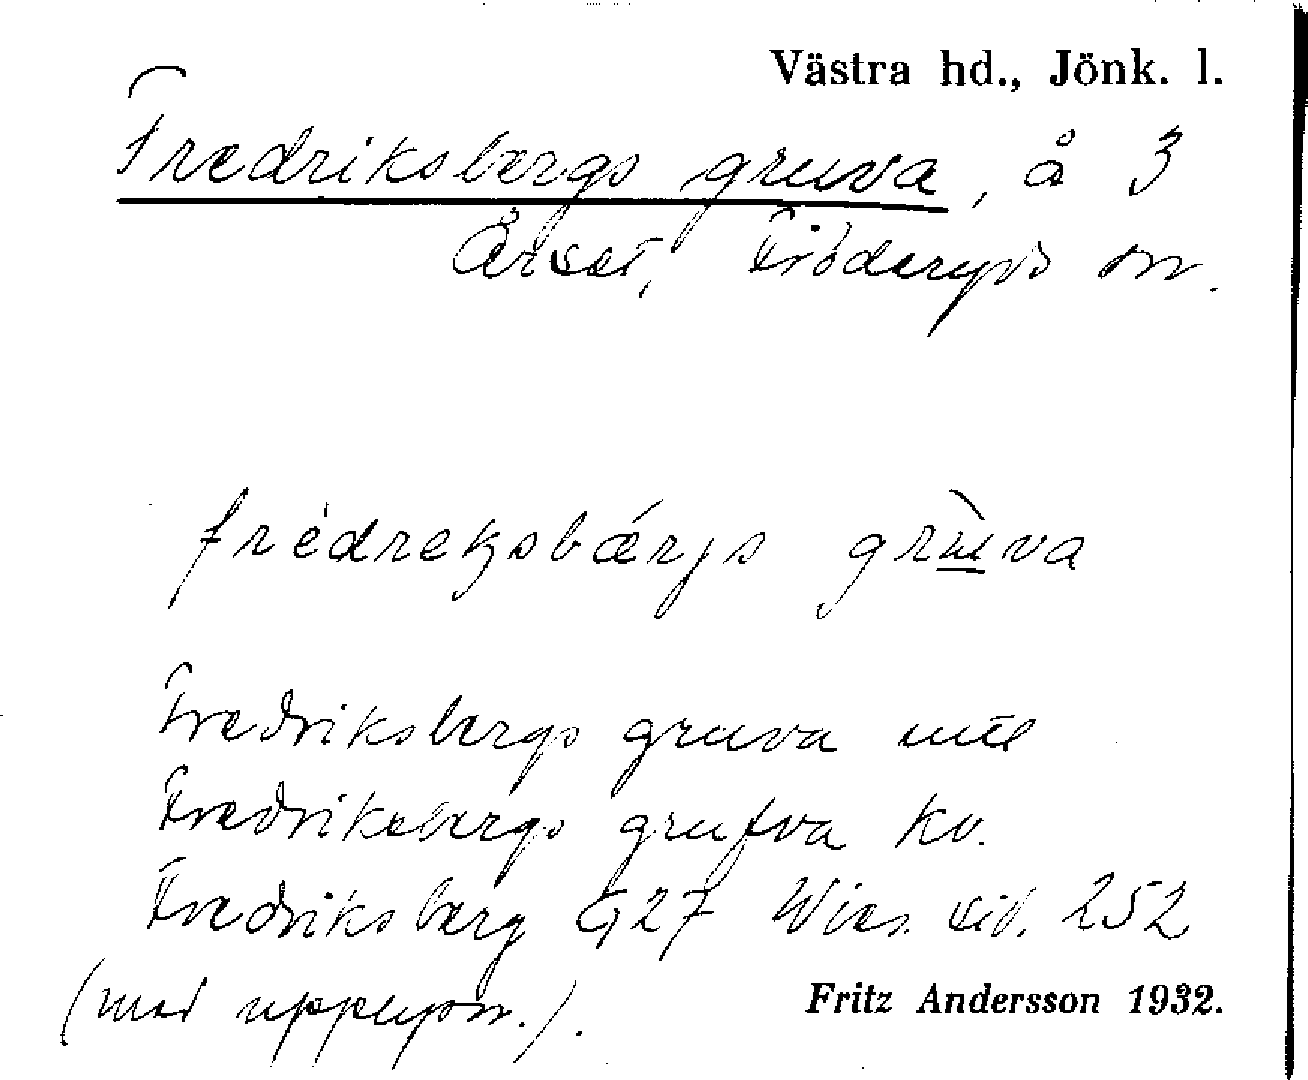 Västra hd., Jönk. l.
Fredriksbergs gruva, å 3
Årset, Fröderyds sn.
frédreksbǽrjs grùva
Fredriksbergs gruva utt
Fredriksbergs grufva kv.
Fredriksberg G 27 Wies. sid. 252
(med upplysn.).
Fritz Andersson 1932.